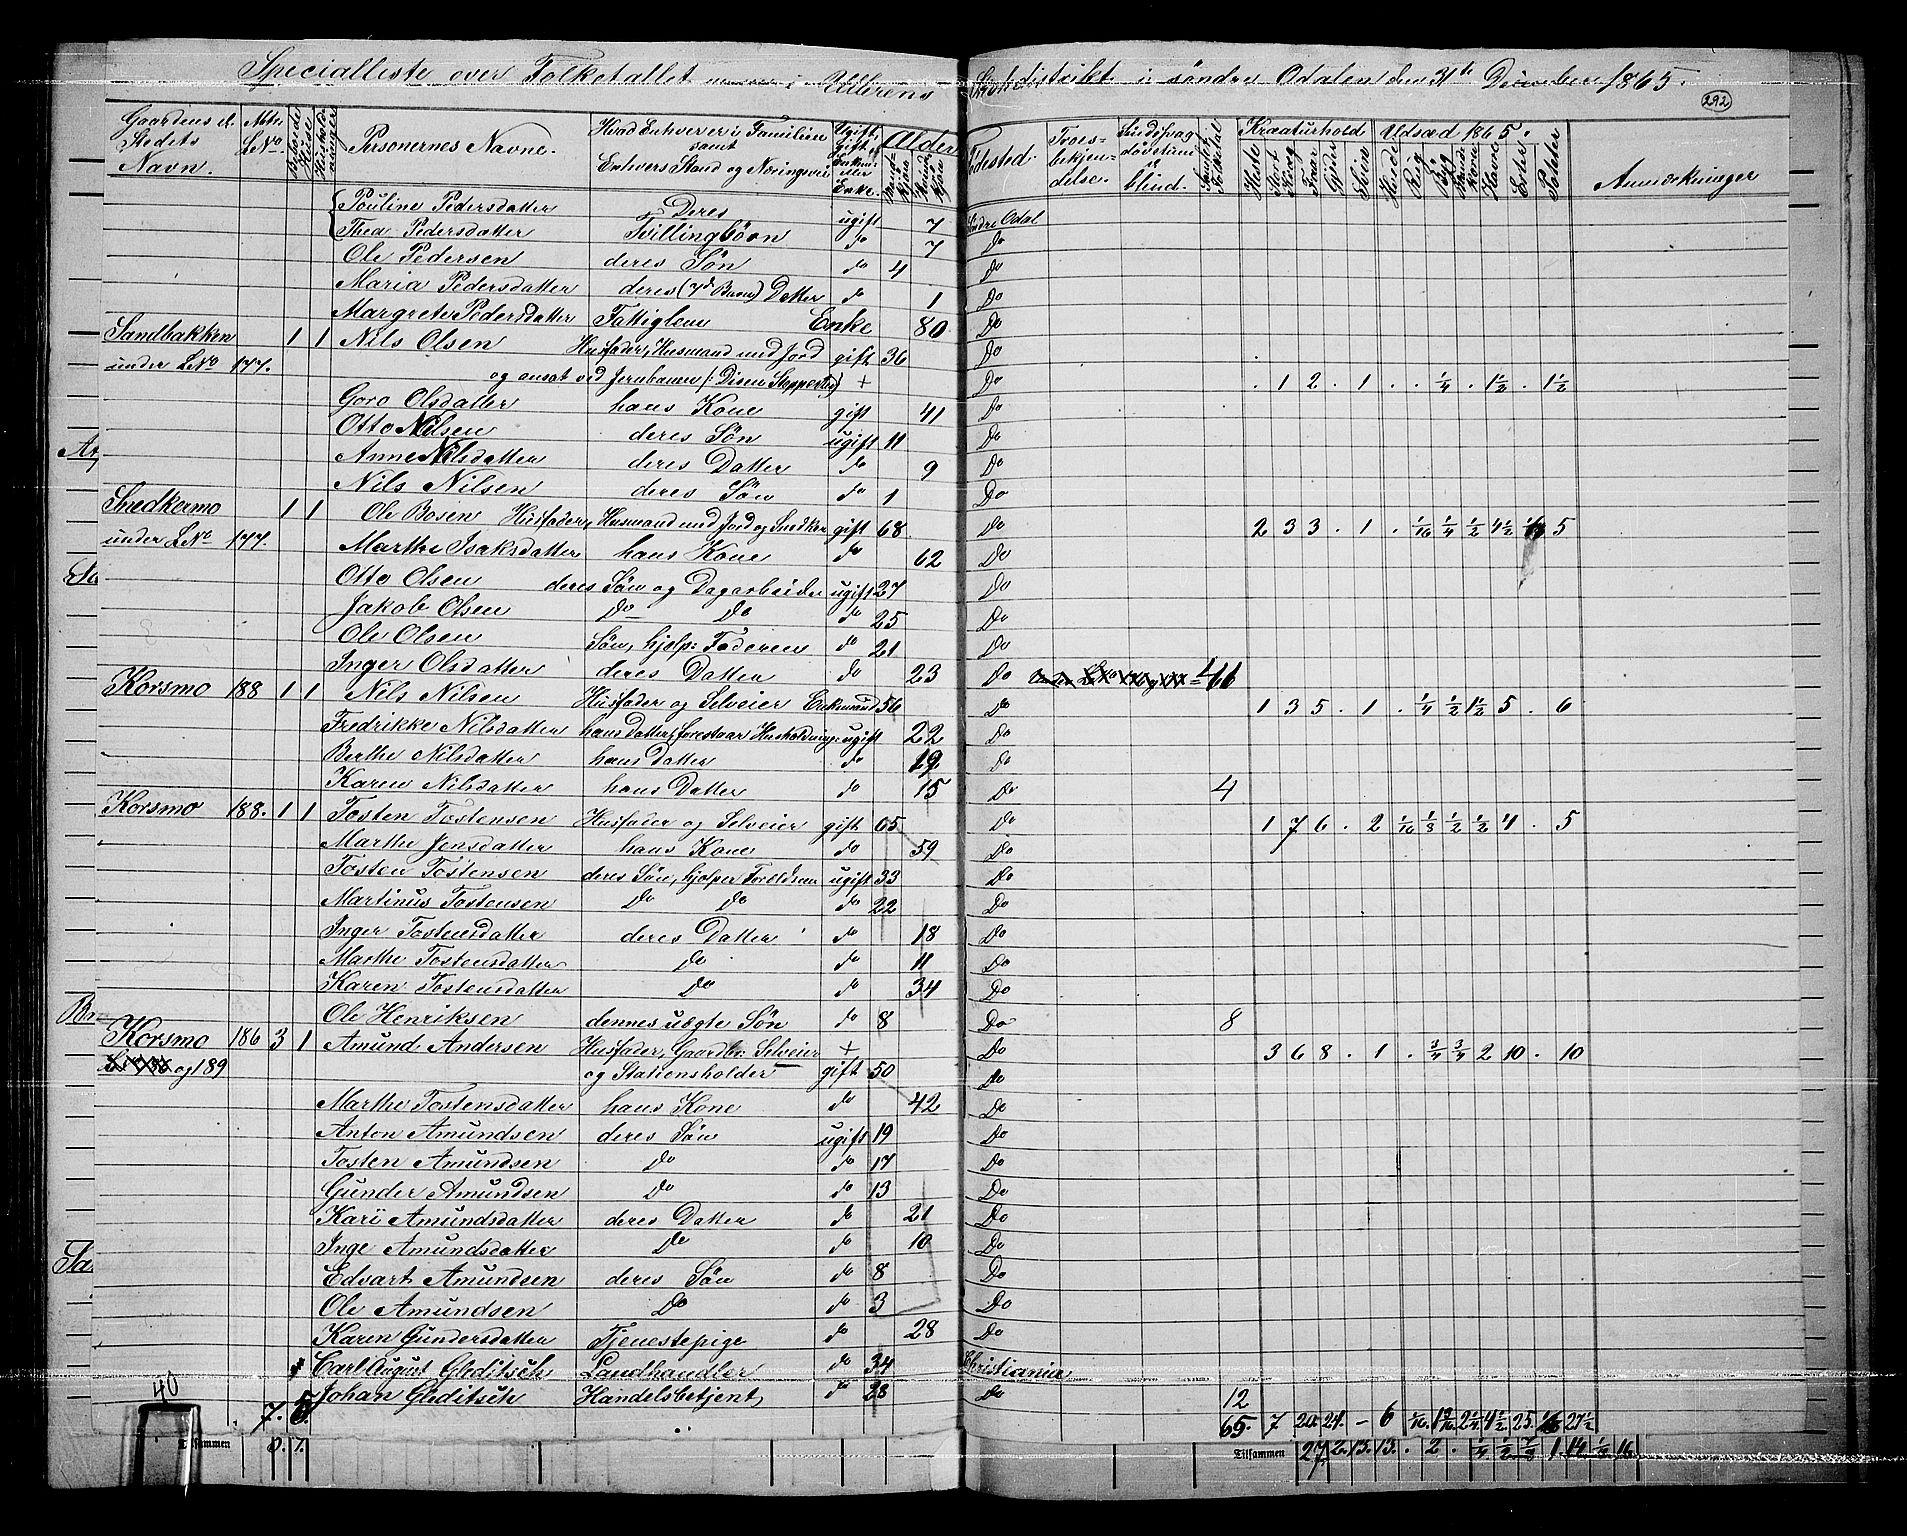 Specialliste over Folketallet i Ullerens Skoledistrikt i søndre Odalen den 31te December 1865.
292
Gaardens el. Stedets Navn. Mtr. LNo. Beboede Huse Personernes Navne. Hvad Enhver er i Familien samt Enhvers Stand og Næringsvei Ugift, gift, Enkem. eller Enke. Alder Fødested. Troes-bekjendelse. Sindssvag døvstum el. blind. Kreaturhold Udsæd 1865. Anmærkninger
Heste Stort Kvæg Faar Gjeder Sviin Hvede Rug Byg Havre Erter Poteter
Pouline Pedersdatter Deres ugift 7 Søndre Odal
Thea Pedersdatter Tvillingbörn do 7 Do
Ole Pedersen deres Søn do 4 Do
Maria Pedersdatter deres Datter do 1 Do
Margrete Pedersdatter Fattiglem Enke 80 Do
Sandbakken 1 1 Nils Olsen Husfader, Husmand med Jord gift 36 Do
under LNo 177. og ansat ved Jernbanen (: Disen Stoppested) + Do . 1 2 . 1 . . 1/4 . 1 1/2 . 1 1/2
Goro Olsdatter hans Kone gift 41 Do
Otto Nilsen deres Søn ugift 11 Do
Anne Nilsdatter deres Datter do 9 Do
Nils Nilsen deres Søn do 1 Do
Snedkermo 1 1 Ole Bosen Husfader, Husmand med Jord og Snedker gift 68 Do 2 3 3 . 1 . 1/16 1/4 1/2 4 1/2 1/16 5
under LNo 177. Marthe Isaksdatter hans Kone do 62 Do
Otto Olsen deres Søn og Dagarbeider ugift 27 Do
Jakob Olsen Do Do do 25 Do
Ole Olsen Søn, hjelp: Faderen do 21 Do
Inger Olsdatter deres Datter do 23 Do
Korsmo 188 1 1 Nils Nilsen Husfader og Selveier Enkemand 56 Do 1 3 5 . 1 . 1/4 1/2 1 1/2 5 . 6
Fredrikke Nilsdatter hans datter, forestaar Husholdning: ugift 22 Do
Berthe Nilsdatter hans Datter do 19 Do
Karen Nilsdatter hans Datter do 15 Do 4
Korsmo 188. 1 1 Tosten Tostensen Husfader og Selveier gift 65 Do 1 7 6 . 2 1/16 1/8 1/2 1/2 4 . 5
Marthe Jensdatter hans Kone do 59 Do
Tosten Tostensen deres Søn, hjelper Forældrene ugift 33 Do
Martinus Tostensen Do Do do 22 Do
Inger Tostensdatter deres Datter do 18 Do
Marthe Tostensdatter Do do 11 Do
Karen Tostensdatter Do do 34 Do
Ole Henriksen dennes uægte Søn do 8 Do 8
Korsmo 186 3 1 Amund Andersen Husfader, Gaardbr: Selveier + Do 3 6 8 . 1 . 3/4 3/4 2 10 . 10
og 189 og Stationsholder gift 50 Do
Marthe Tostensdatter hans Kone do 42 Do
Anton Amundsen deres Søn ugift 19 Do
Tosten Amundsen Do do 17 Do
Gunder Amundsen Do do 13 Do
Kari Amundsdatter deres Datter do 21 Do
Inge Amundsdatter Do do 10 Do
Edvart Amundsen deres Søn do 8 Do
Ole Amundsen Do do 3 Do
Karen Gundersdatter Tjenestepige do 28 Do
Carl August Gleditsch Landhandler do 34 Christiania
40 Johan Gleditsch Handelsbetjent do 28 Do 12
7. 65. 7 20. 24. – 6 1/16. 2 1/4 4 1/2 25. 27 1/2
Tilsammen Tilsammen 27